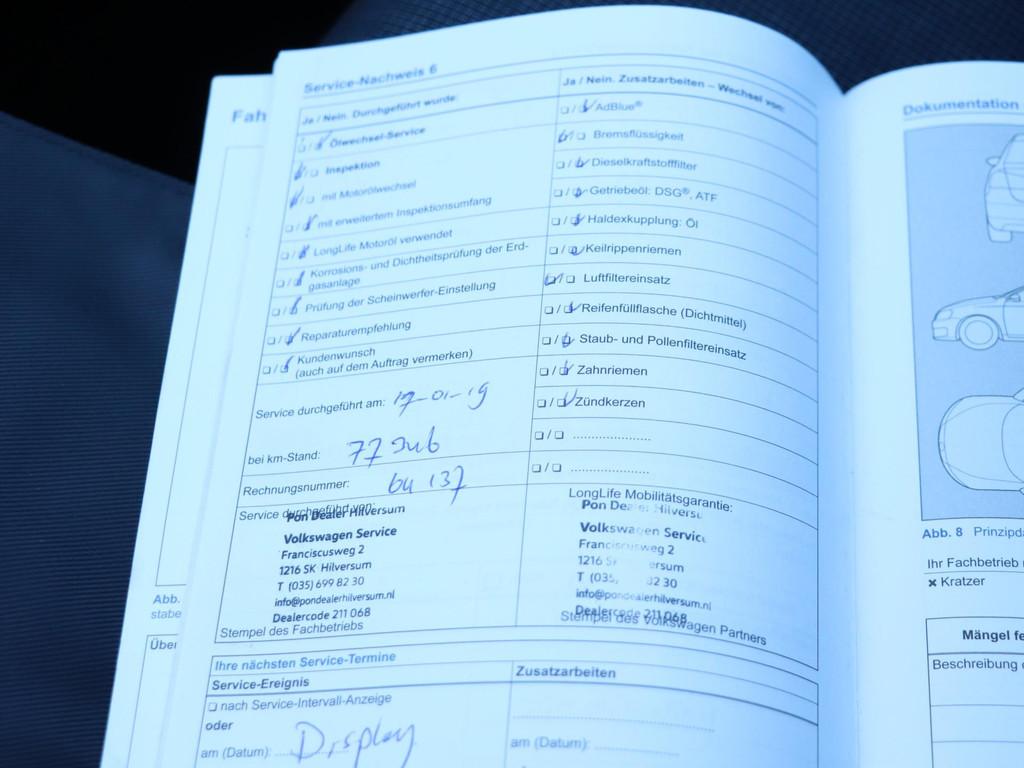 Service-Nachweis 6
Fah
Ja / Nein. Durchgeführt wurde:
Ölwechsel-Service
Inspektion
mit Motorölwechsel
mit erweitertem Inspektionsumfang
LongLife Motoröl verwendet
Korrosions- und Dichtheitsprüfung der Erd-
gasanlage
Prüfung der Scheinwerfer-Einstellung
Reparaturempfehlung
Kundenwunsch
(auch auf dem Auftrag vermerken)
Service durchgeführt am: 17-01-19
bei km-Stand: 77
Rechnungsnummer: 137
Service durchgeführt von:
Pon Dealer Hilversum
Volkswagen Service
Franciscusweg 2
1216 SK Hilversum
T (035) 699 82 30
info@pondealerhilversum.nl
Dealercode 211 068
Stempel des Fachbetriebs
Ja / Nein. Zusatzarbeiten – Wechsel von:
AdBlue®
Bremsflüssigkeit
Dieselkraftstofffilter
Getriebeöl: DSG®, ATF
Haldexkupplung: Öl
Keilrippenriemen
Luftfiltereinsatz
Reifenfüllflasche (Dichtmittel)
Staub- und Pollenfiltereinsatz
Zahnriemen
Zündkerzen
LongLife Mobilitätsgarantie:
Pon Dealer Hilversu
Volkswagen Service
Franciscusweg 2
1216 S ersum
T (035, 32 30
info@pondealerhilversum.nl
Dealercode 211 068
Stempel des Volkswagen Partners
Ihre nächsten Service-Termine
Service-Ereignis
nach Service-Intervall-Anzeige
oder
am (Datum): Display
Zusatzarbeiten
am (Datum):
Abb.
stabe
Über
Dokumentation
Abb. 8 Prinzipda
Ihr Fachbetrieb
× Kratzer
Mängel fe
Beschreibung